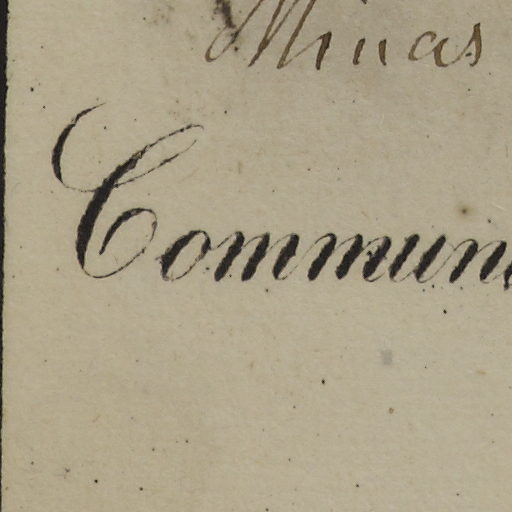 Minas
Commun